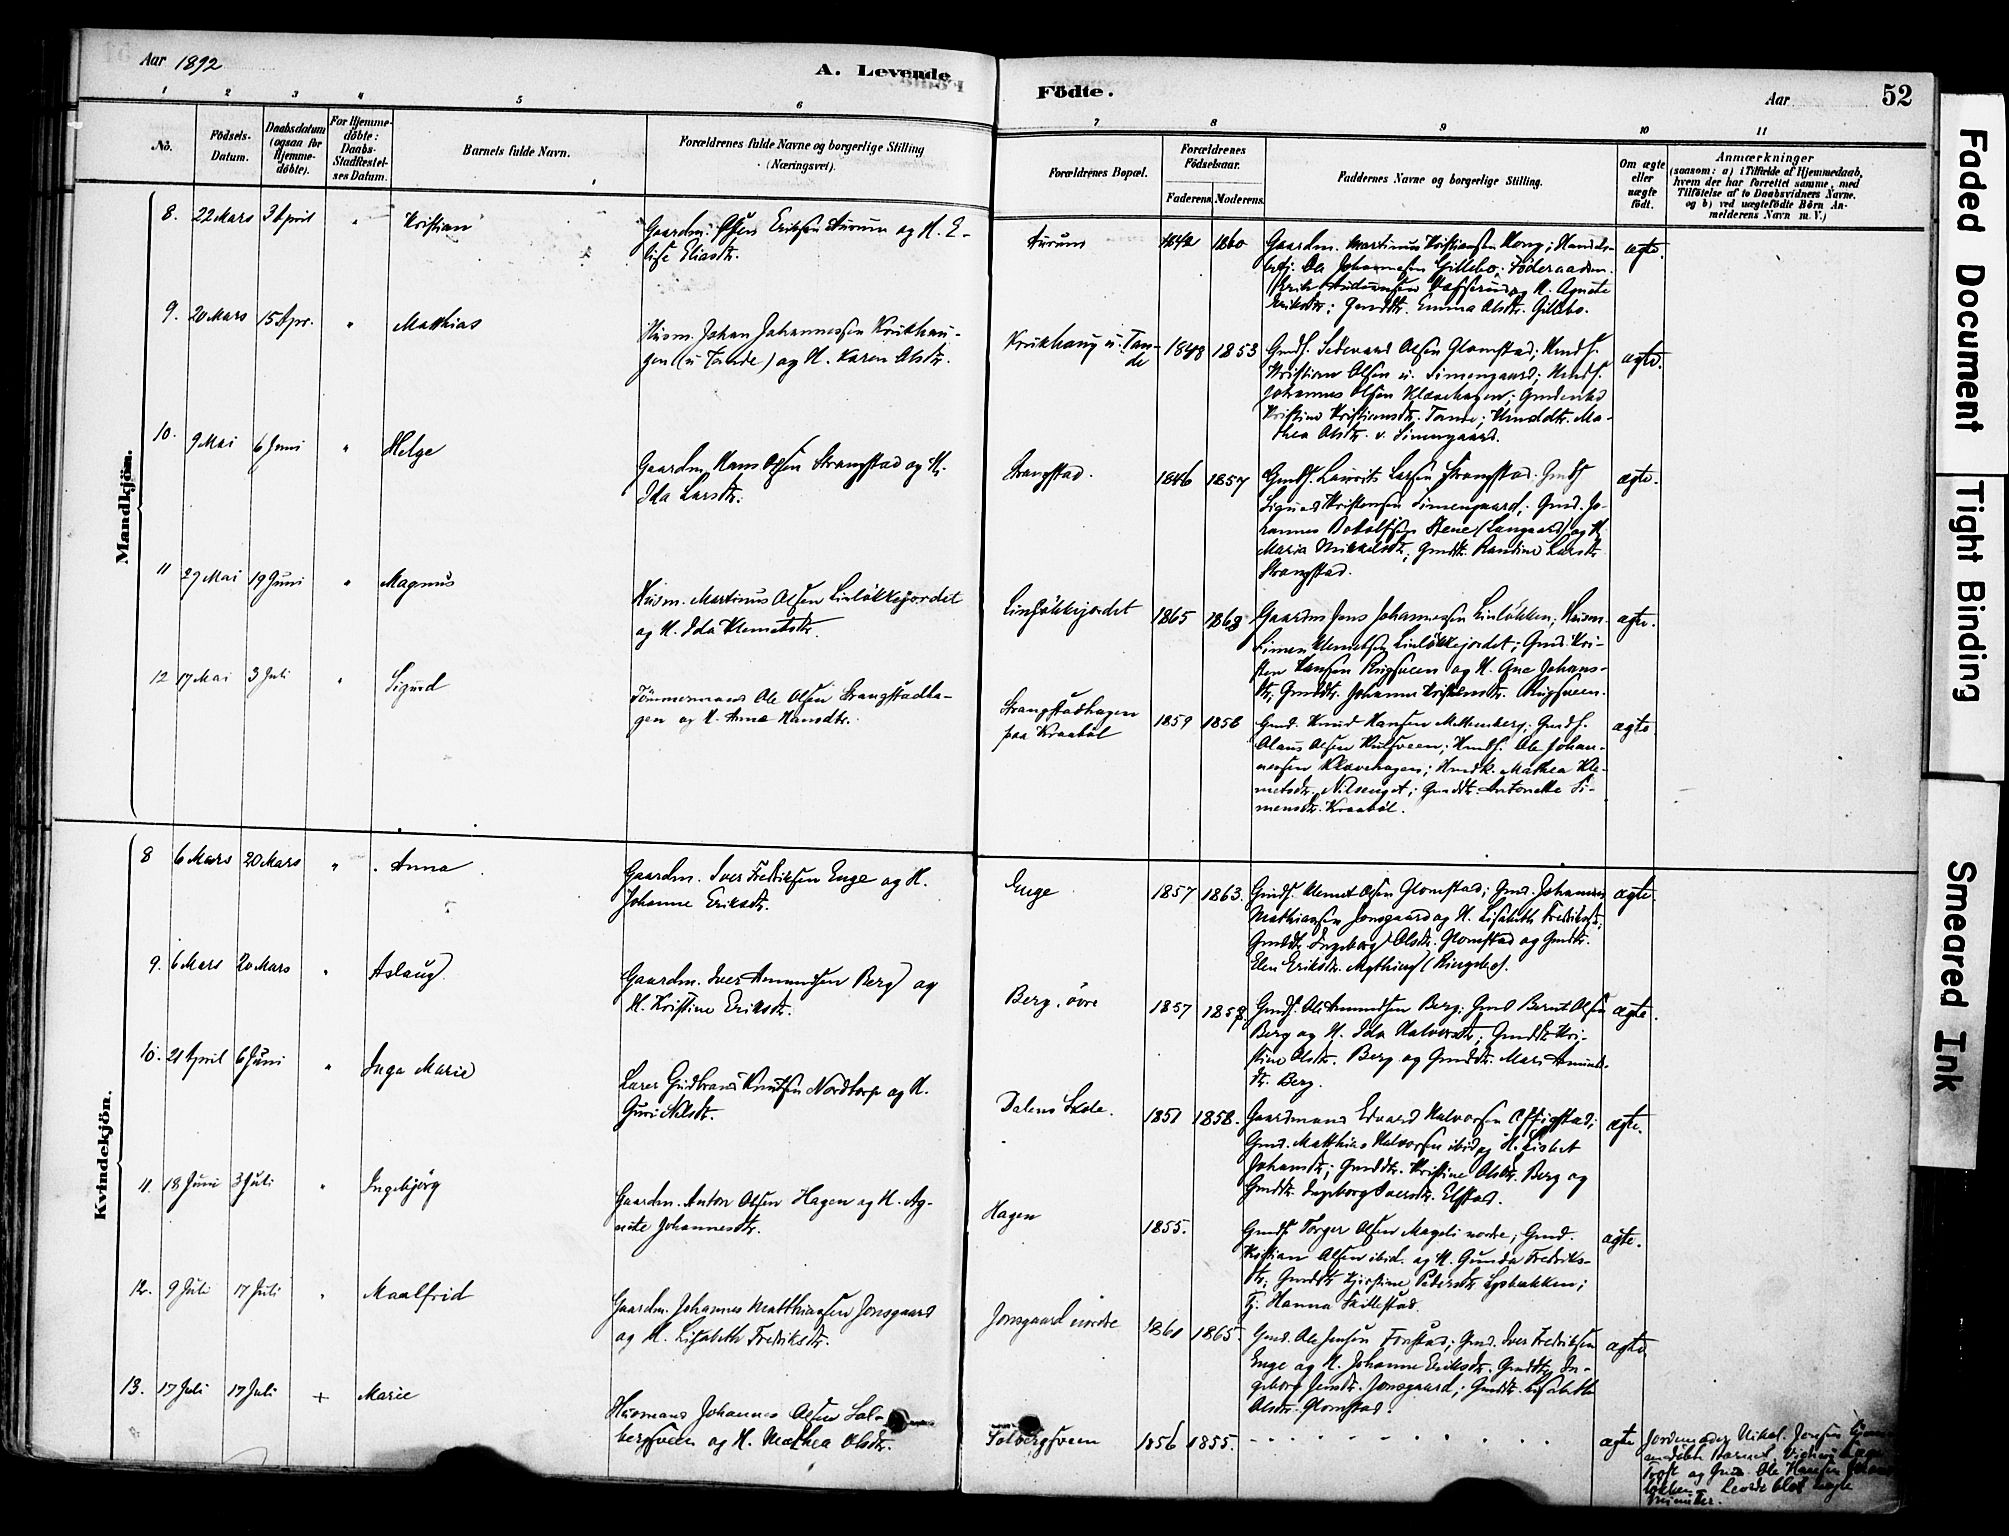 Aar 1892
A. Levende
Födte.
Aar
52
1 2 3 4 5 6 7 8 9 10 11
No.
Födsels-
Datum.
Daabsdatum
(ogsaa for
Hjemme-
döbte).
For Hjemme-
döbte:
Daabs-
Stadfæstel-
ses Datum.
Barnets fulde Navn.
Forældrenes fulde Navne og borgerlige Stilling
(Næringsvei).
Forældrenes Bopæl.
Forældrenes
Födselsaar.
Faderens. Moderens.
Faddernes Navne og borgerlige Stilling.
Om ægte
eller
uægte
födt.
Anmærkninger
(saasom: a) i Tilfælde af Hjemmedaab,
hvem der har forrettet samme, med
Tilföielse af to Daabsvidners Navne.
og b) ved uægtefödte Börn An-
melderens Navn m. V.)
Mandkjön.
8. 22 Mars 3 April " Kristian
Gaardm. Eriksen Aurum og H. E-
lise Eliasdtr.
Aurum 1842 1860
Gaardm. Martinus Kristiansen Kong; Handels-
betj. Ole Johannesen Gillebo; Föderaadsm.
Erik og H. Agnete
Eriksdtr; Gmdtr. Emma Olsdtr. Gillebo.
ægte.
9. 20 Mars 15 Apr. " Matthias
Husm. Johan Johannessen Krukhau-
gen (u Tande) og H. Karen Olsdtr.
Krukhaug u. Tan-
de 1848 1853
Gmds. Sedevard Olsen Glomstad; Hmds.
Kristian Olsen u. Simengaard; Hmds.
Johannes Olsen Klævehagen; Gmdenke
Kristine Kristiansdtr. Tande; Hmddtr. Ma-
thea Olsdtr. v. Simengaard.
ægte.
10. 9 Mai 6 Juni " Helge
Gaardm. Hans Olsen Strangstad og H.
Ida Larsdtr.
Strangstad. 1846 1857
Gmds. Laurits Larsen Strangstad. Gmds
Sigurd Kristensen Simengaard; Gmd. Jo-
hannes Botolfsen Stene (Langaard) og H.
Maria Mikkelsdtr; Gmdtr. Randine Larsdtr
Strangstad.
ægte.
11 29 Mai 19 Juni " Magnus
Husm. Martinus Olsen Linlökkejordet
og H. Ida Klemetsdtr.
Linlökkejordet 1865 1868
Gaardm Jens Johannessen Linlökken; Husm.
Simen Klemetsen Linlökkejordet; Gmd. Kri-
sten Hansen Rugsveen og H. Ane Johans-
dtr; Gmddtr. Johanne Kristensdtr Rugsveen.
ægte.
12 17 Mai 3 Juli " Sigurd
Tömmermand Ole Olsen Strangstadha-
gen og H. Anne Hansdtr.
Strangstadhagen
paa Kraaböl 1859 1856
Gmd. Knud Hansen Mellemberg; Gmds.
Olaus Olsen Kulsveen; Hmds. Ole Johan-
nessen Klævehagen; Hmdk. Mathea Kle-
metsdtr. Nilsenget; Gmddtr. Antonette Si-
mensdtr. Kraaböl.
ægte.
Kvindekjön.
8 6 Mars 20 Mars " Anna
Gaardm. Iver Fredriksen Enge og H.
Johanne Eriksdtr.
Enge 1857 1863.
Gmds. Klemet Olsen Glomstad; Gmd. Johannes
Mathiassen Jonsgaard og H. Lisabeth Fredriksdtr;
Gmddtr Ingeborg Olsdtr. Glomstad og Gmdtr.
Elen Eriksdtr. Mythung (Ringebo).
ægte.
9. 6 Mars 20 Mars " Aslaug
Gaardm. Iver Amundsen Berg og
H. Kristine Eriksdtr.
Berg, övre 1857 1858.
Gmds. Ole Amundsen Berg; Gmd Bernt Olsen
Berg og H. Ida Halvorsdtr; Gmddtr. Kri-
stine Olsdtr. Berg og Gmddtr. Mari Amunds-
dtr. Berg.
ægte.
10. 21 April 6 Juni " Inga Marie
Lærer Gudbrand Knutsen Nordtorp og H.
Guri Nilsdtr.
Dalens Skole. 1851 1858.
Gaardmand Edvard Halvorsen Offigstad;
Gmd. Matthias Halvorsen ibid og H. Lisbet
Johansdtr; Gmddtr. Kristine Olsdtr. Berg og
Gmddtr. Ingeborg Iversdtr. Elstad.
ægte.
11. 18 Juni 3 Juli " Ingebjörg
Gaardm. Anton Olsen Hagen og H. Ag-
nete Johannesdtr.
Hagen 1855.
Gmds Torger Olsen Mageli nordre; Gmd.
Kristian Olsen ibid. og H. Gunda Fredriks-
dtr; Gmddtr Kjerstine Pedersdtr Lysbakken;
Tj. Hanna Skillestad.
ægte.
12. 9 Juli 17 Juli " Maalfrid
Gaardm. Johannes Matthiassen Jonsgaard
og H. Lisabeth Fredriksdtr.
Jonsgaard nordre 1861 1865.
Gmd. Ole Jensen Forstad; Gmd. Iver Fredriksen
Enge og H. Johanne Eriksdtr; Gmddtr. In-
geborg Jensdtr. Jonsgaard; Gmddtr. Lisabeth
Olsdtr. Glomstad.
ægte.
13. 17 Juli 17 Juli + Marie
Husmand Johannes Olsen Sol-
bergsveen og H. Mathea Olsdtr.
Solbergsveen 1856 1855.
ægte
Jordemoder Nikol. Jensen hjem-
medöbte Barnet. Vidner
og Gmd. Ole Hansen
Levede blot nogle
Minutter.
Faded Document
Tight Binding
Smeared Ink